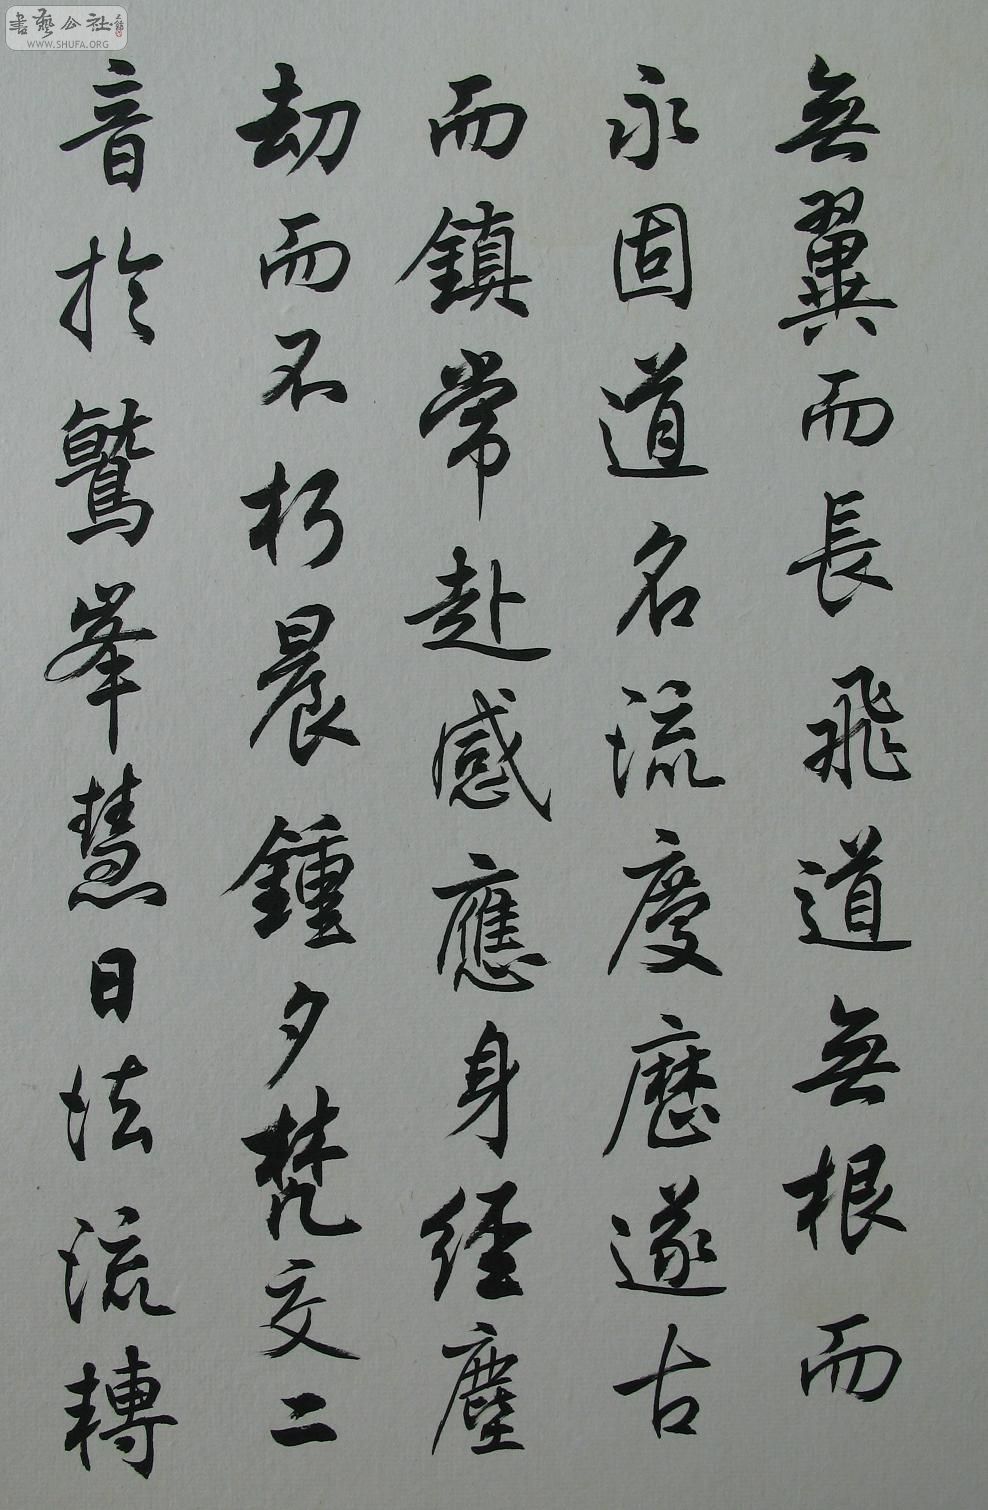 無翼而長飛道無根而
永固道名流慶歷遂古
而鎮常赴感應身經塵
劫而不朽晨鍾夕梵交二
音於鷲峯慧日法流轉
書藝公社
WWW.SHUFA.ORG